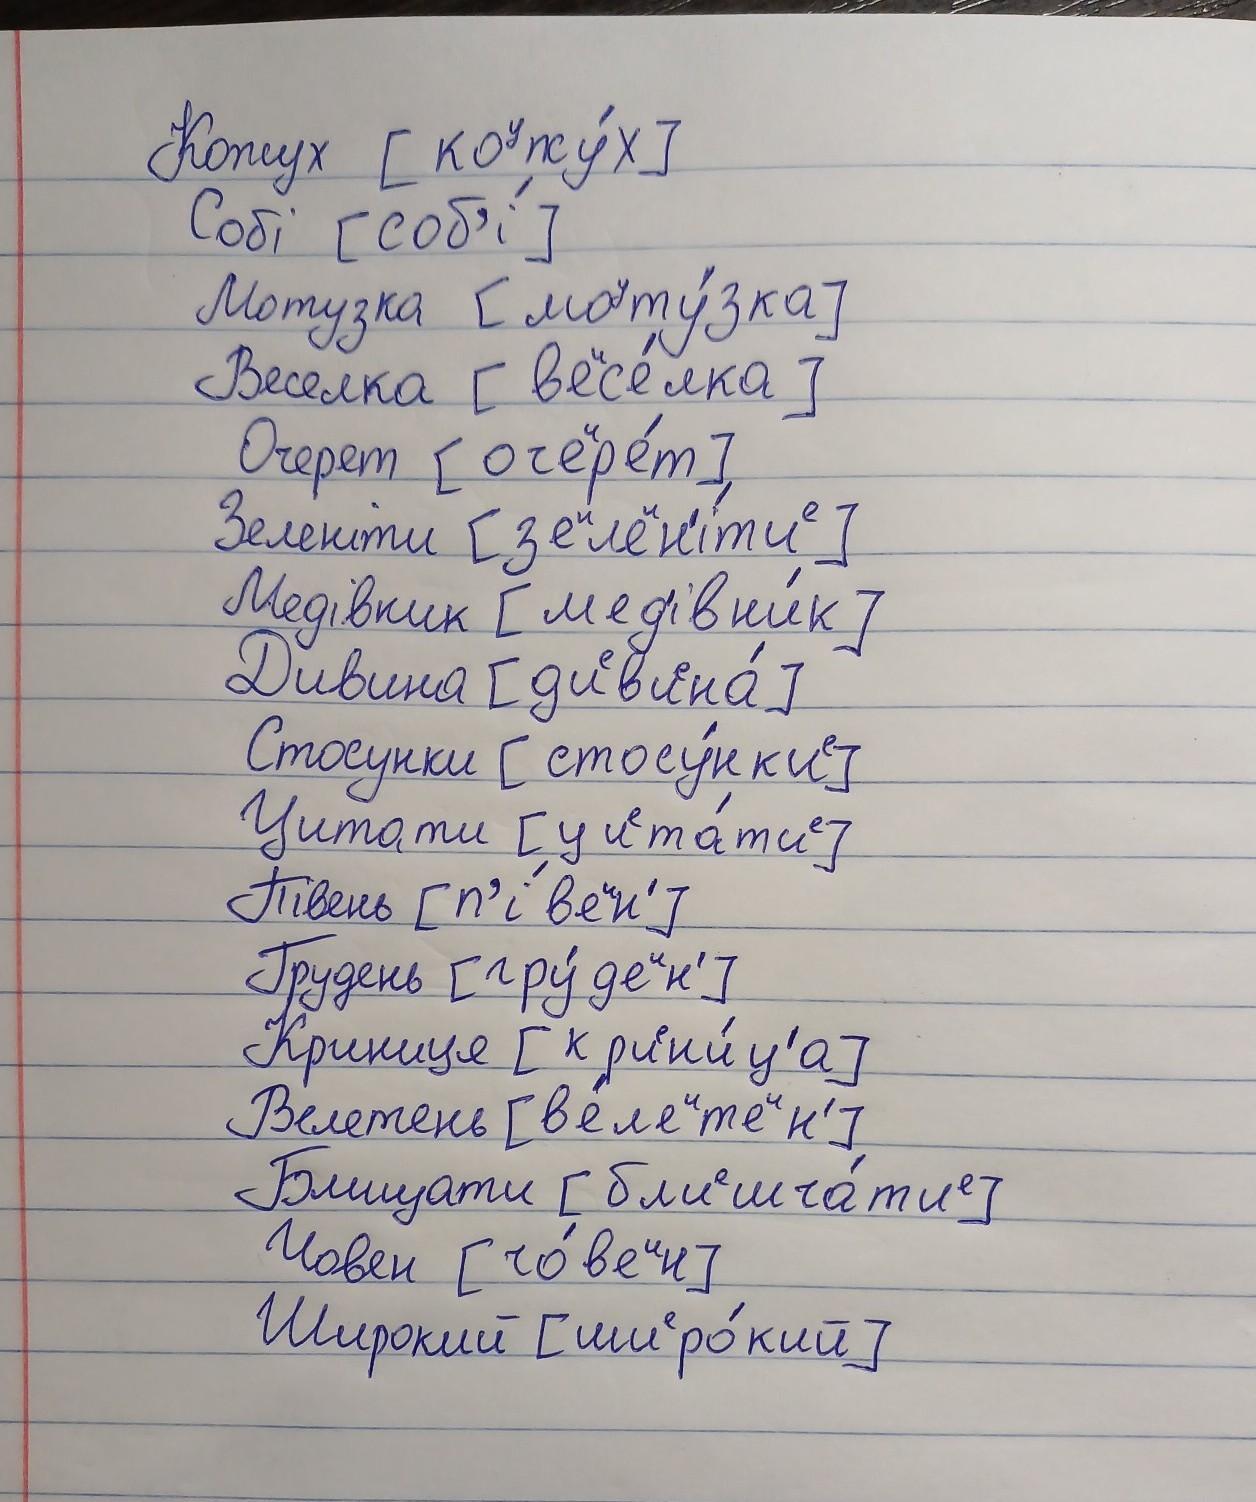 Кожух [ко^у жу́х]
Собі [соб’і́]
Мотузка [мо^у ту́зка]
Веселка [ве^и се́лка]
Очерет [оче^и ре́т]
Зеленіти [зе^и ле^и н'і́ти^е]
Медівник [мед'івни́к]
Дивина [ди^е ви^е на́]
Стосунки [стосу́нки^е]
Цитати [ци^е та́ти^е]
Півень [п’і́ве^и н']
Грудень [гру́де^и н']
Криниця [кри^е ни́ц'а]
Велетень [ве́ле^и те^и н']
Блищати [бли^е шча́ти^е]
Човен [чо́ве^и н]
Широкий [ши^е ро́кий]